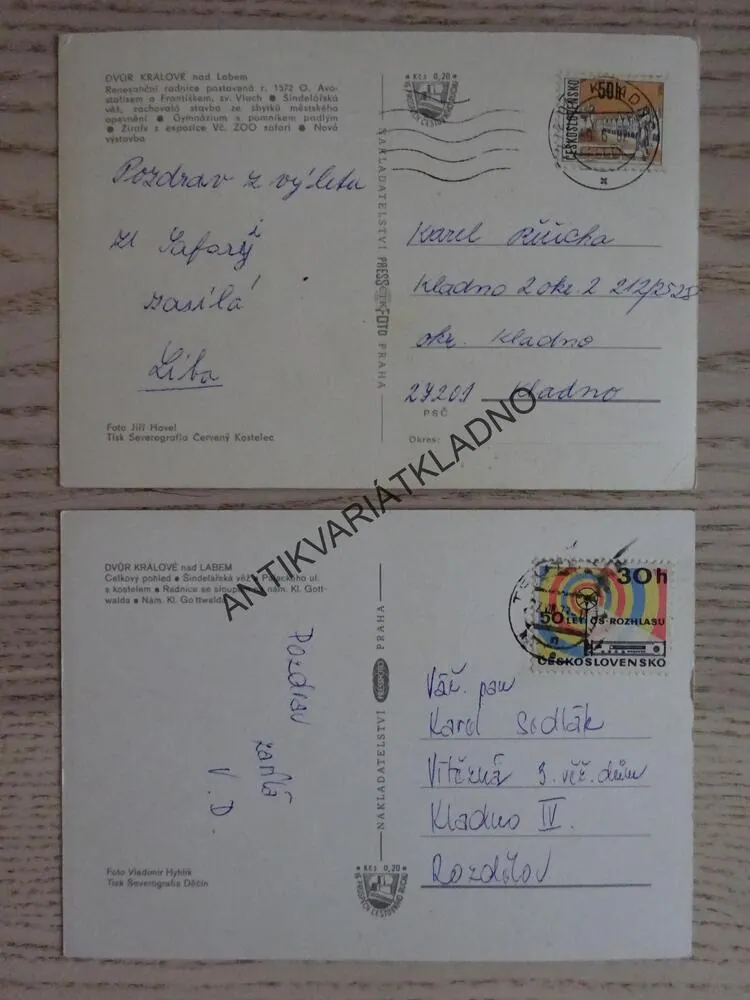 DVŮR KRÁLOVÉ nad Labem
Renesanční radnice postavená r. 1572 O. Avo-
statisem a Františkem, zv. Vlach ● Šindelářská
věž, zachovalá stavba ze zbytků městského
opevnění ● Gymnázium s pomníkem padlým
● Žirafy z expozice Vč. ZOO safari ● Nová
výstavba
Kčs 0,20
50h
ČESKOSLOVENSKO
Pozdrav z výletu
zasílá
Líba
NAKLADATELSTVÍ PRESSFOTO PRAHA
Karel
Kladno 2 okr. 2 212/2528
okr. Kladno
27201 Kladno
PSČ
Okres:
Foto Jiří Havel
Tisk Severografia Červený Kostelec
ANTIKVARIÁTKLADNO
DVŮR KRÁLOVÉ nad LABEM
Celkový pohled ● Šindelářská věž ● Palackého ul.
s kostelem ● Radnice se sloupem nám. Kl. Gott-
walda ● Nám. Kl. Gottwalda
30h
50 LET ČS. ROZHLASU
ČESKOSLOVENSKO
Pozdrav
V. D.
NAKLADATELSTVÍ PRESSFOTO PRAHA
Váž. pan
Karel Sedlák
Vítězná 3. věž. dům
Kladno IV.
Rozdělov
Foto Vladimír Hyhlík
Tisk Severografia Děčín
Kčs 0,20
VE PROSPĚCH CESTOVNÍHO RUCHU